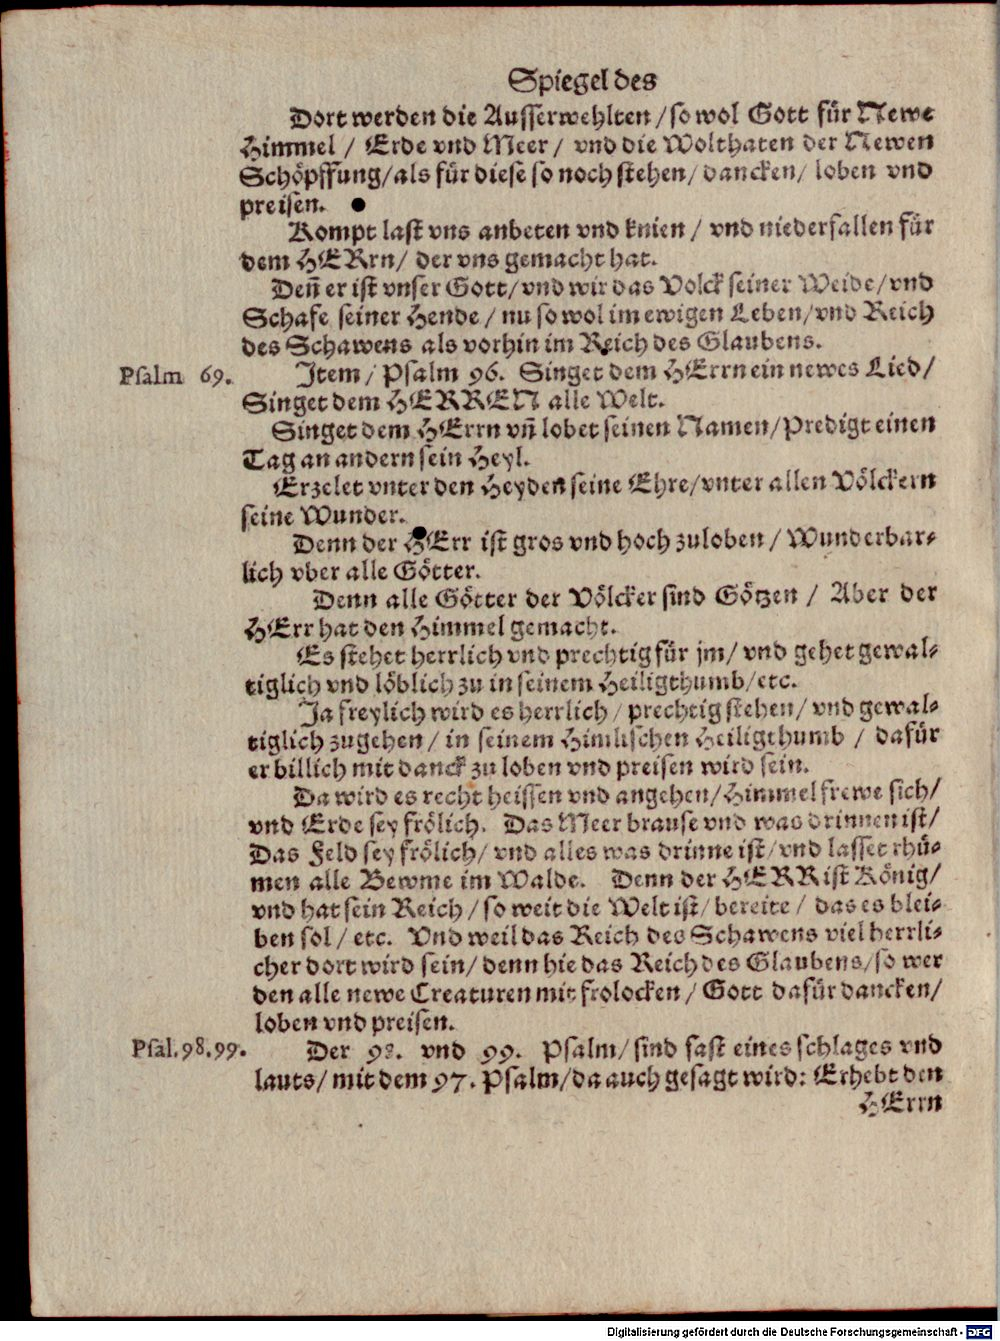 Spiegel des
Dort werden die Ausserwehlten / so wol Gott für Newe
Himmel / Erde vnd Meer / vnd die Wolthaten der Newen
Schöpffung / als für diese so noch stehen / dancken / loben vnd
preisen.
Kompt last vns anbeten vnd knien / vnd niederfallen für
dem HERrn / der vns gemacht hat.
Deñ er ist vnser Gott / vnd wir das Volck seiner Weide / vnd
Schafe seiner Hende / nu so wol im ewigen Leben / vnd Reich
des Schawens als vorhin im Reich des Glaubens.
Psalm 69. Item / Psalm 96. Singet dem HErrn ein newes Lied /
Singet dem HERREN alle Welt.
Singet dem HErrn vñ lobet seinen Namen / Predigt einen
Tag an andern sein Heyl.
Erzelet vnter den Heyden seine Ehre / vnter allen Völckern
seine Wunder.
Denn der HErr ist gros vnd hoch zuloben / Wunderbar-
lich vber alle Götter.
Denn alle Götter der Völcker sind Götzen / Aber der
HErr hat den Himmel gemacht.
Es stehet herrlich vnd prechtig für jm / vnd gehet gewal-
tiglich vnd löblich zu in seinem Heiligthumb / etc.
Ja freylich wird es herrlich / prechtig stehen / vnd gewal-
tiglich zugehen / in seinem Himlischen Heiligthumb / dafür
er billich mit danck zu loben vnd preisen wird sein.
Da wird es recht heissen vnd angehen / Himmel frewe sich /
vnd Erde sey frölich. Das Meer brause vnd was drinnen ist /
Das Feld sey frölich / vnd alles was drinne ist / vnd lasset rhü-
men alle Bewme im Walde. Denn der HERR ist König /
vnd hat sein Reich / so weit die Welt ist / bereite / das es blei-
ben sol / etc. Vnd weil das Reich des Schawens viel herrli-
cher dort wird sein / denn hie das Reich des Glaubens / so wer
den alle newe Creaturen mit frolocken / Gott dafür dancken /
loben vnd preisen.
Psal. 98. 99. Der 98. vnd 99. Psalm / sind fast eines schlages vnd
lauts / mit dem 97. Psalm / da auch gesagt wird: Erhebt den
HErrn
Digitalisierung gefördert durch die Deutsche Forschungsgemeinschaft - DFG